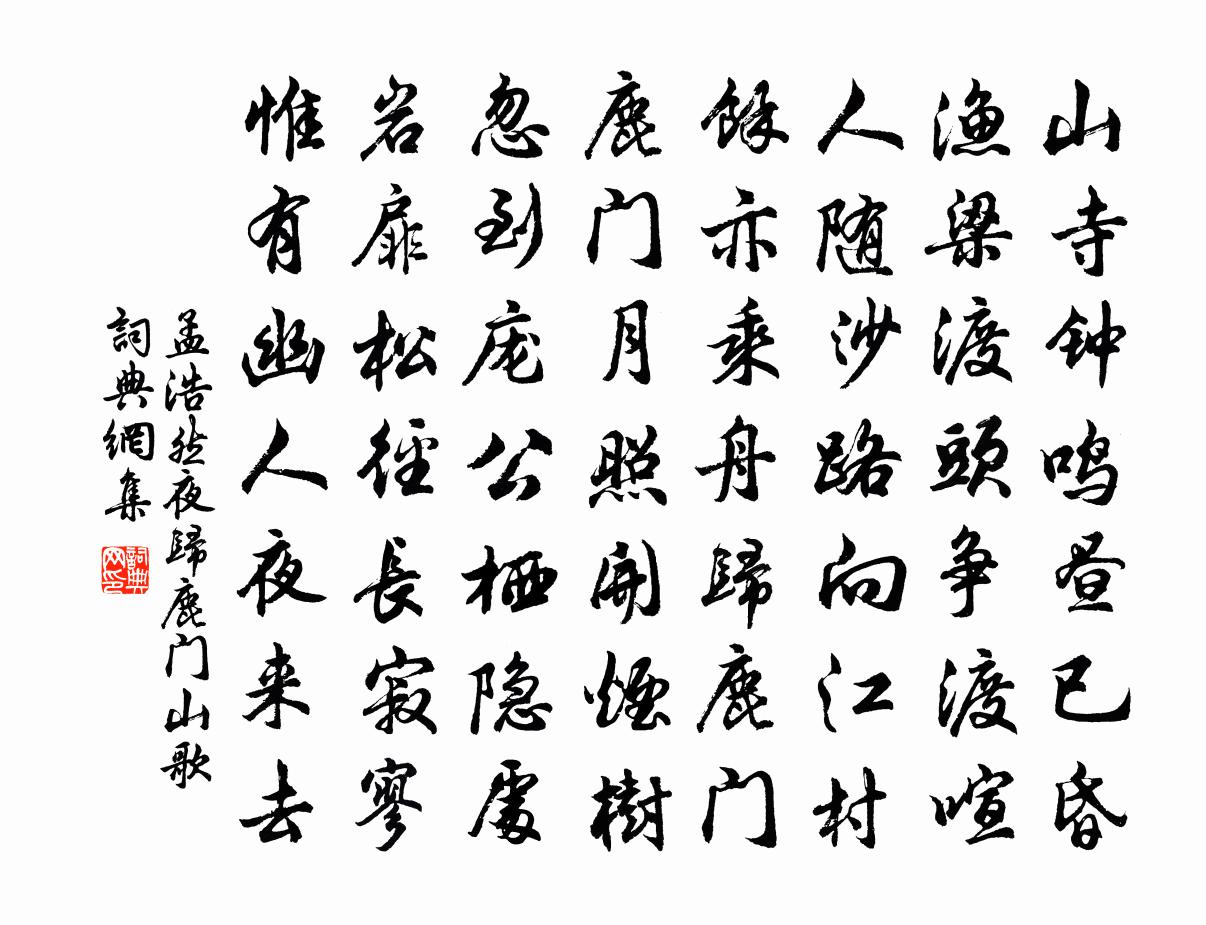 山寺钟鸣昼已昏
渔梁渡頭争渡喧
人随沙路向江村
餘亦乘舟歸鹿门
鹿门月照開煙樹
忽到庞公栖隐處
岩扉松径長寂寥
惟有幽人夜来去
孟浩然夜歸鹿门山歌
詞典網集
詞典网印